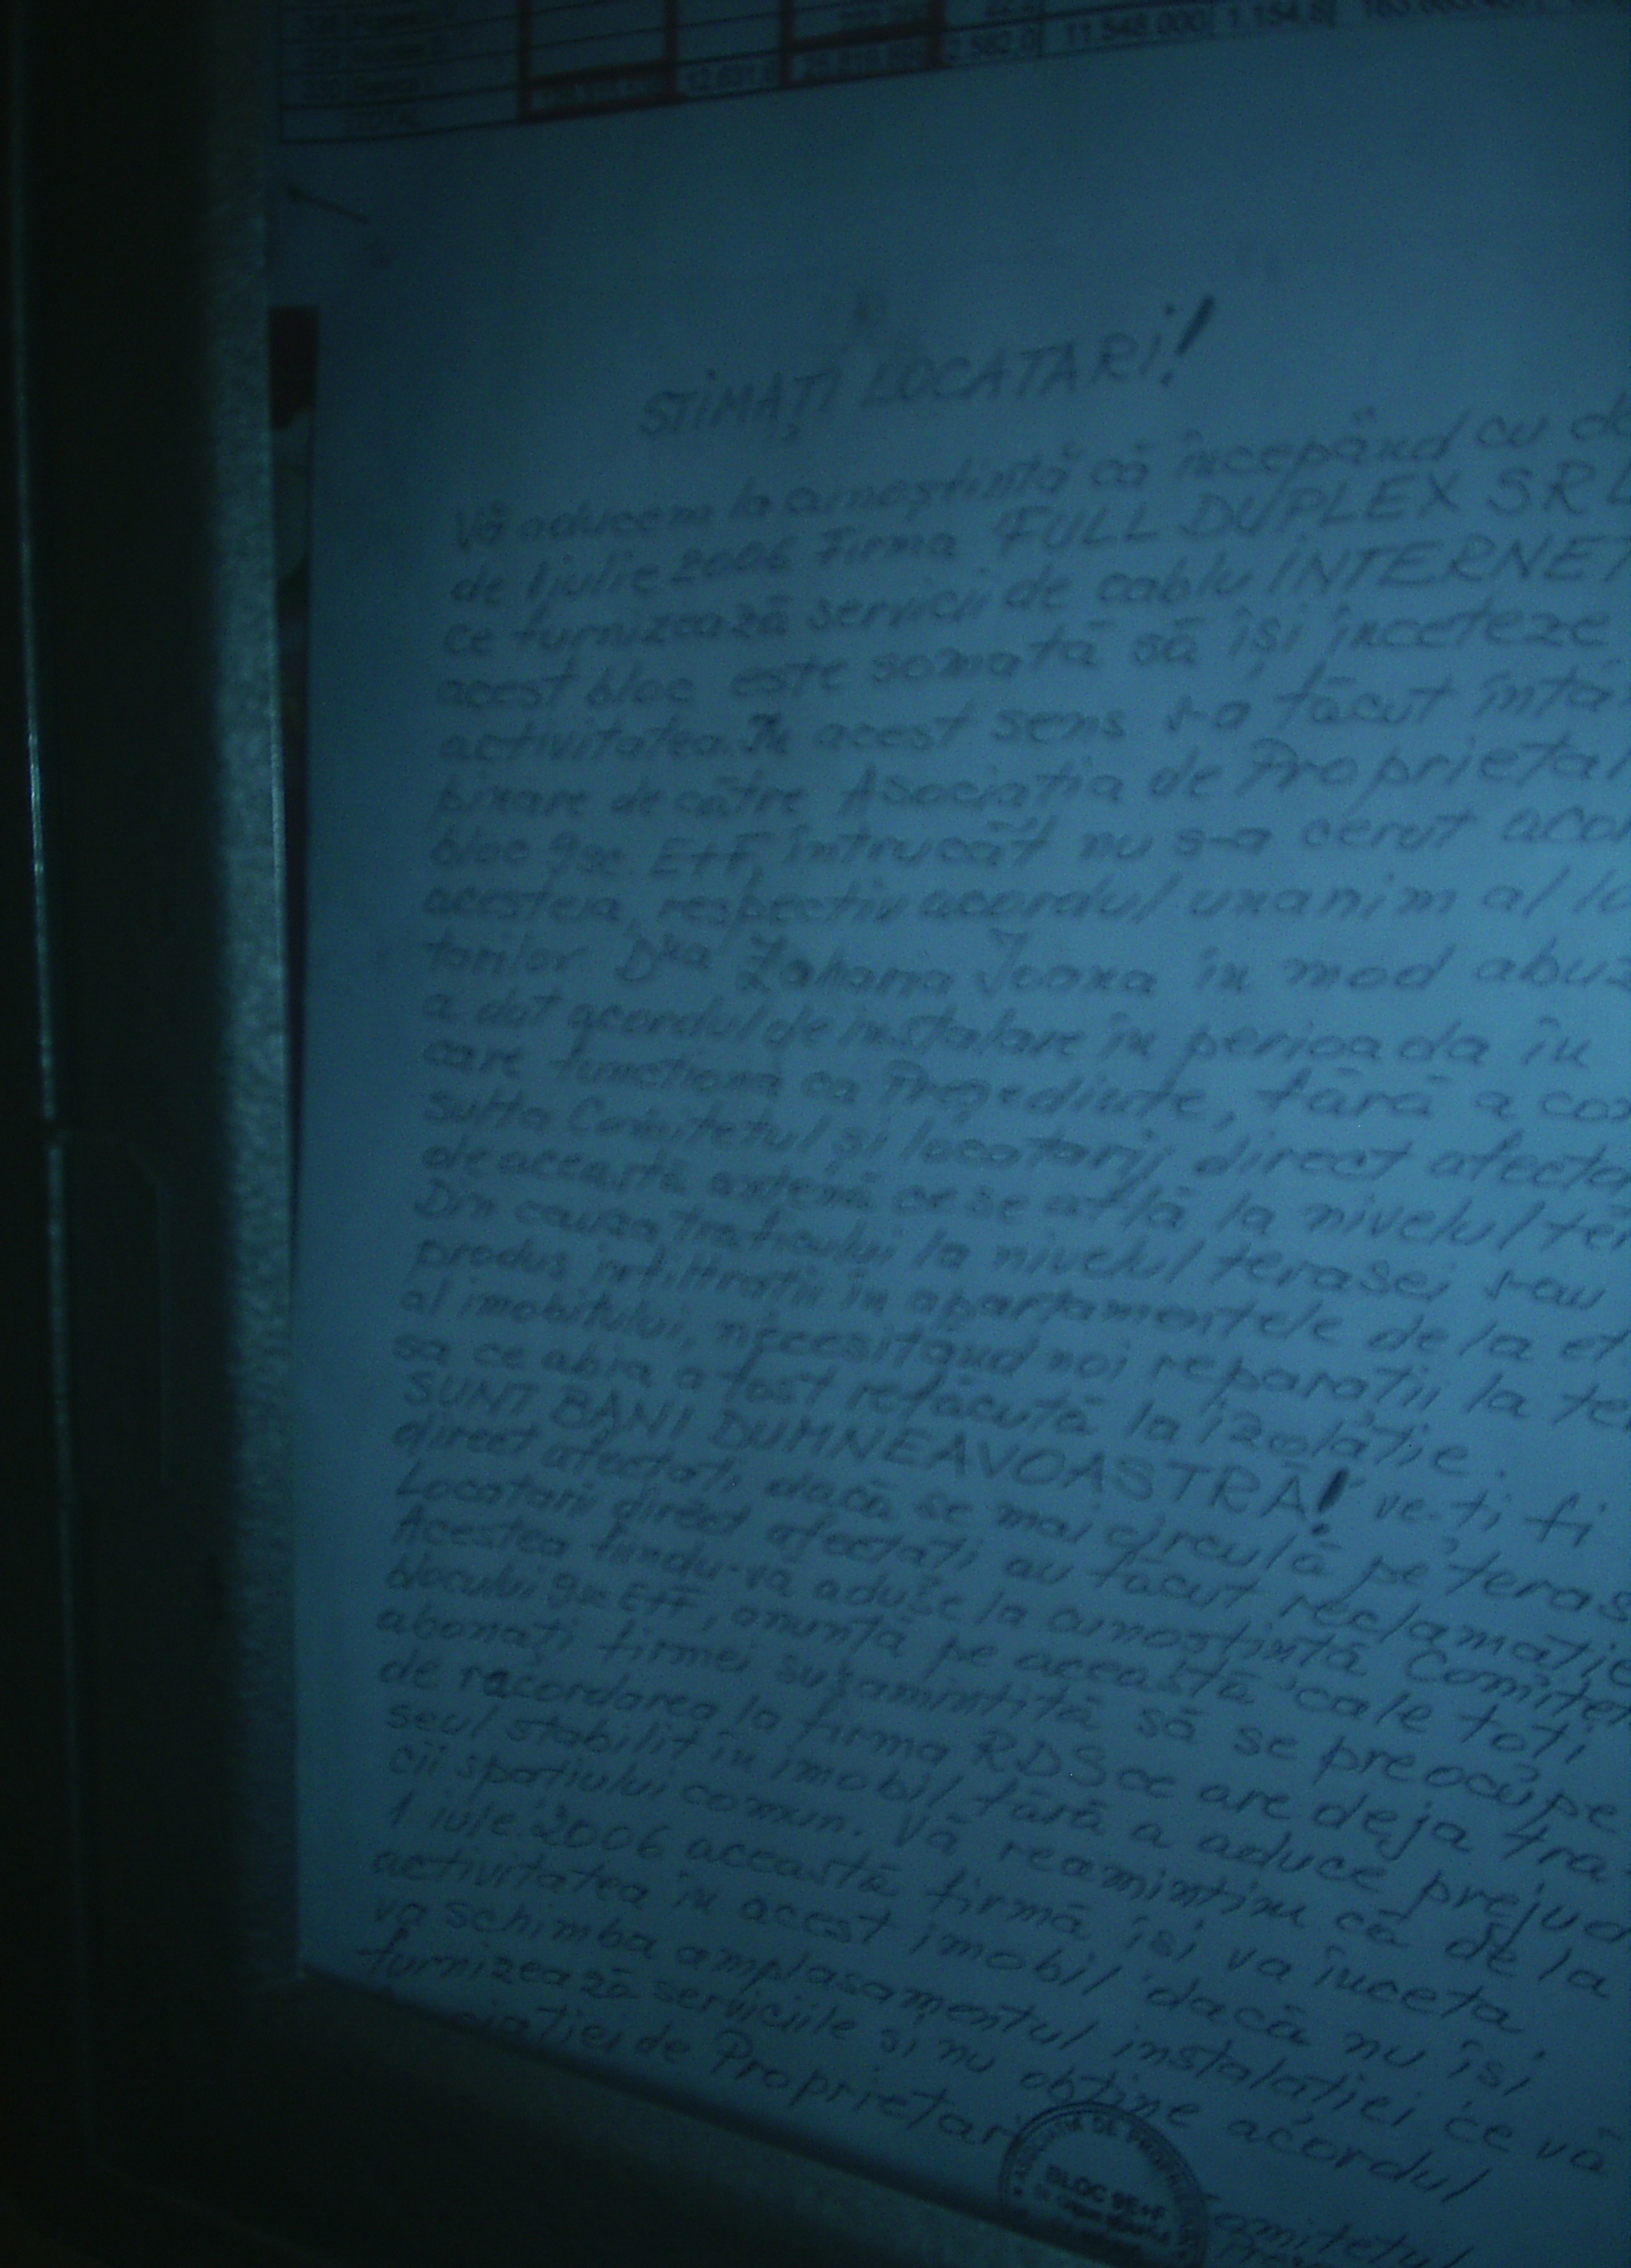 TOTAL
11.548.000
STIMAȚI LOCATARI!
Vă aducem la cunoștință că începând cu
de 1 iulie 2006 Firma FULL DUPLEX SRL
ce furnizează servicii de cablu INTERNET
acest bloc este somată să își înceteze
activitatea. În acest sens s-a făcut întâm
pinare de către Asociația de Proprietar
bloc 9 sc. E+F, întrucât nu s-a cerut acor
acesteia, respectiv acordul unanim al
tarilor. Dna Zaharia Ioana în mod abuz
a dat acordul de instalare în perioada în
care funcționa ca Președinte, fără a con
sulta Comitetul și locatarii direct afecta
de această antenă ce se află la nivelul ter
Din cauza traficului la nivelul terasei s-au
produs infiltrații în apartamentele de la et.
al imobilului, necesitând noi reparații la te
sa ce abia a fost refăcută la izolație.
SUNT BANI DUMNEAVOASTRĂ! ve-ți fi
direct afectați dacă se mai circulă pe teras
Locatarii direct afectați au făcut reclamație
Acestea fiindu-vă aduse la cunoștință Comitet
blocului 9 sc E+F, anunță pe această cale toți
abonați firmei susamintită să se preocupe
de racordarea la firma RDS ce are deja tra
seul stabilit în imobil fără a aduce prejud
cii spațiului comun. Vă reamintim că de la
1 iule 2006 această firmă își va înceta
activitatea în acest imobil dacă nu își
va schimba amplasamentul instalației ce vă
furnizează serviciile și nu obține acordul
ciației de Proprietari
BLOC 9E+F
omitetul